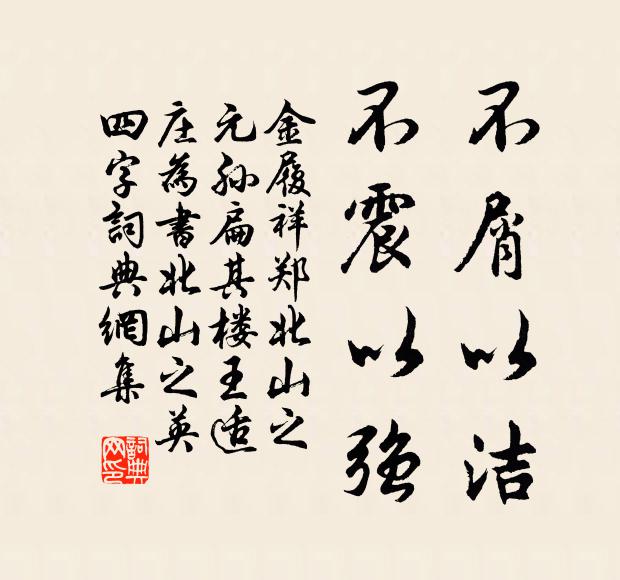 不屑以洁
不震以強
金履祥郑北山之
元孙扁其楼王适
庄為書北山之英
四字詞典網集
詞典
网印